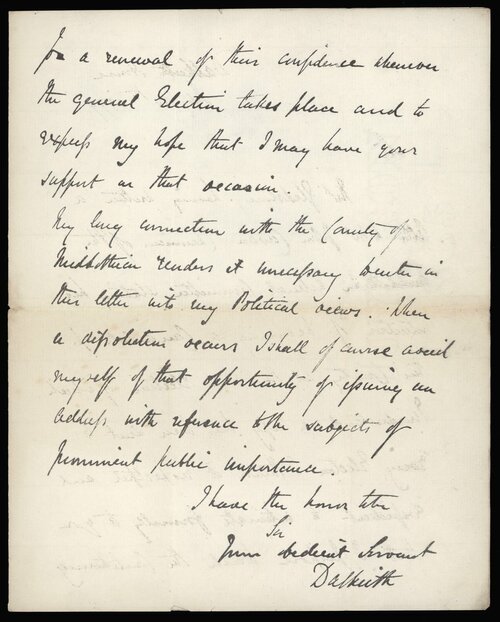 for a renewal of their confidence whenever
the general Election takes place and to
express my hope that I may have your
support on that occasion.
My long connection with the County of
Midlothian renders it unnecessary to enter in
this letter into my Political views. When
a dissolution occurs I shall of course avail
myself of that opportunity of issuing an
Address with reference to the subjects of
prominent public importance.
I have the honor to be
Sir
Your obedient Servant
Dalkeith